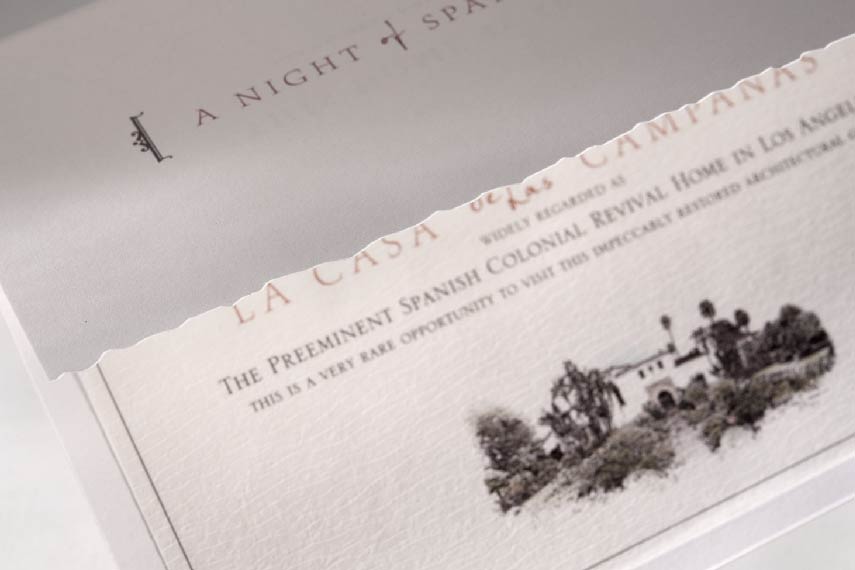 A NIGHT of
LA CASA de Las CAMPANAS
WIDELY REGARDED AS
THE PREEMINENT SPANISH COLONIAL REVIVAL HOME IN LOS
THIS IS A VERY RARE OPPORTUNITY TO VISIT THIS IMPECCABLY RESTORED ARCHITECTURAL